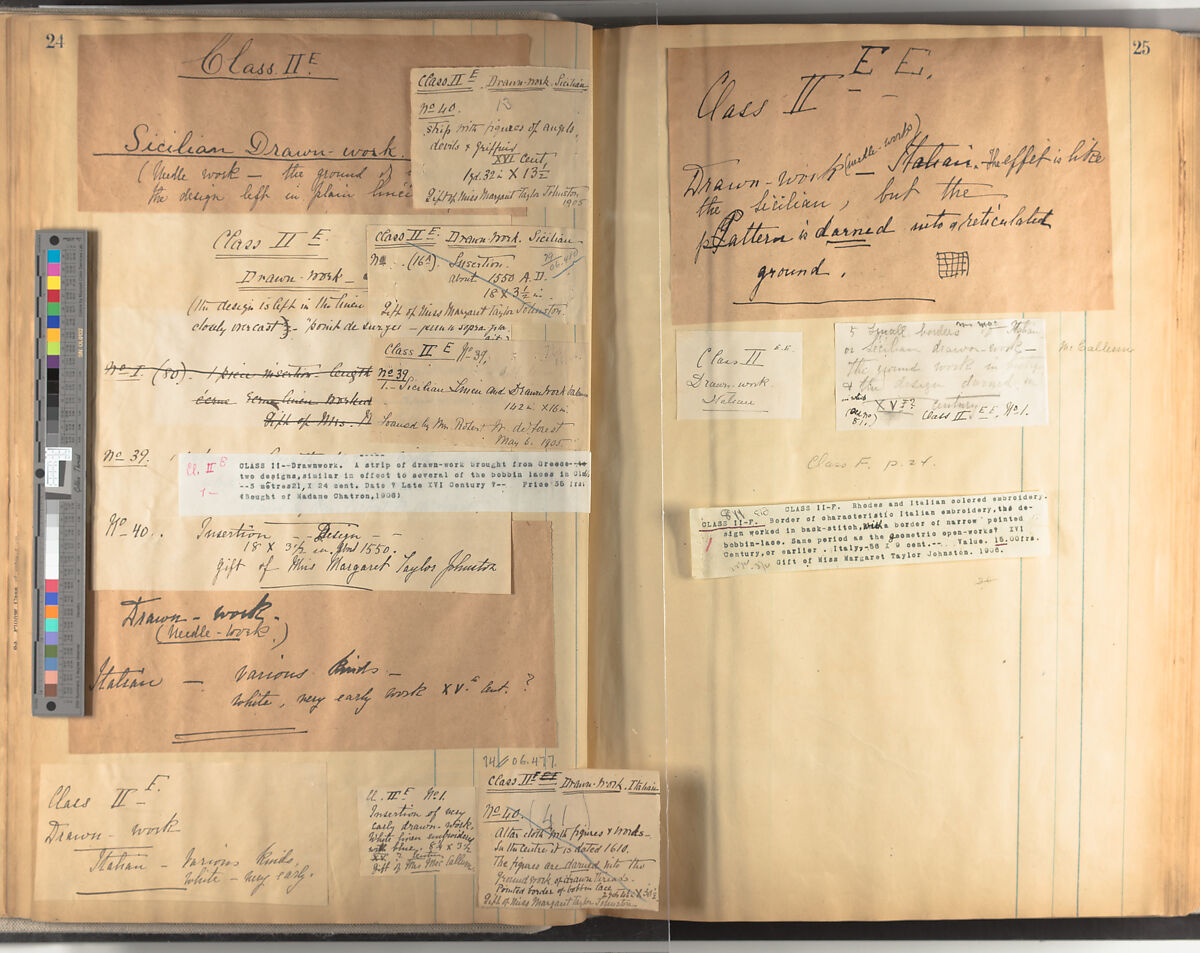 24
Class II E.
Sicilian Drawn-work.
(Needle work — the ground
the design left in plain
Class II E Drawn-work Sicilian
No 40. 13
ship with figures of angels,
devils & griffins
XVI Cent.
1 yd. 32 in X 13 1/2
Gift of Miss Margaret Taylor Johnston
1905
Class II E.
Drawn-work —
(the design is left in the linen
closely overcast) "point de
Class II E. Drawn-work. Sicilian
(16A). Insertion.
about 1550 A.D.
18 X 3 1/2 in.
Gift of Miss Margaret Taylor Johnston.
Class II E No 39.
No 39
1.- Sicilian Linen and Drawnwork
142 in X 16 in.
Loaned by Mrs. Robert W. de Forest
May 6. 1905
No I (80). insertion length
linen worked
Gift of Mrs.
No 39.
Cl. II E
1-
CLASS II--Drawnwork. A strip of drawn-work brought from Greece--
two designs, similar in effect to several of the bobbin laces in
--3 metres21, X 24 cent. Date ? Late XVI Century ?-- Price 35 frs.
(Bought of Madame Chatron, 1906)
No 40.. Insertion — Design —
18 X 3 1/2 in. 1550.
gift of Miss Margaret Taylor Johnston
Drawn-work.
(Needle-work.)
Italian — various kinds —
white, very early work XV.th Cent. ?
Class II E.
Drawn-work
Italian — various kinds,
white — very early.
Cl. II E No 1.
Insertion of very
early drawn-work.
White linen embroidery
with blue. 84 X 3 1/2
XV ? Century
Gift of Mrs Mac Callum
06.477.
Class II E Drawn-work. Italian
No 40. 141
Altar cloth with figures & words—
In the centre it is dated 1610.
The figures are darned into the
groundwork of drawn threads.
Pointed border of bobbin lace
Gift of Miss Margaret Taylor Johnston
25
Class II E E.
Drawn-work (needle-work) — Italian. The effect is like
the Sicilian, but the
Pattern is darned into a reticulated
ground.
Class II E.E.
Drawn-work.
Italian
5 small borders of Italian
or Sicilian drawn-work—
The ground work in
& the design darned in
XV ? Century
Class II E E, No 1.
Mc Callum
Class F, p. 24.
CLASS II-F. Rhodes and Italian colored embroidery.
CLASS II-F. Border of characteristic Italian embroidery, the de-
1
sign worked in back-stitch, with a border of narrow pointed
bobbin-lace. Same period as the geometric open-works? XVI
Century, or earlier . Italy,-56 X 9 cent.-- Value. 15.00frs.
Gift of Miss Margaret Taylor Johnston. 1906.